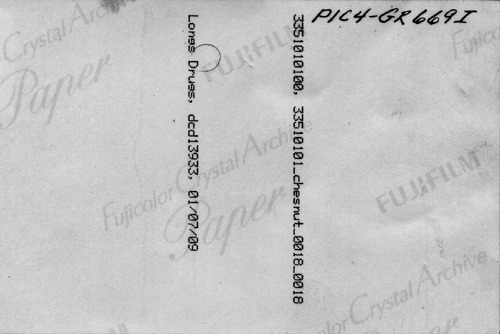 PIC4-GR669I
3351010100, 33510101_chesnut_0018_0018
Longs Drugs, dcd13933, 01/07/09
Crystal Archive
Paper
FUJIFILM
Fujicolor Crystal Archive
Paper
FUJIFILM
Fujicolor Crystal Archive
FUJIFILM